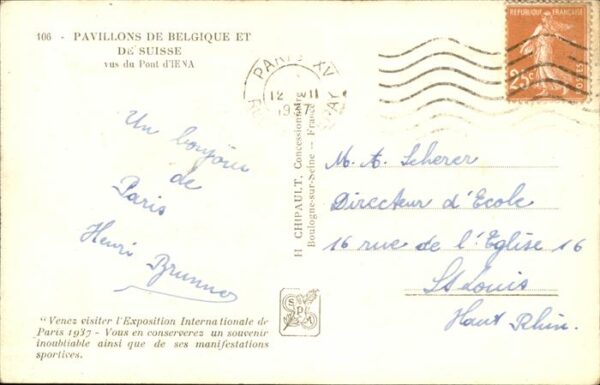 106 - PAVILLONS DE BELGIQUE ET
DE SUISSE
vus du Pont d'IENA
PARIS XV
12 II
1937
RÉPUBLIQUE FRANÇAISE
25c
POSTES
Un bonjour
de
Paris
Henri Brunner
H CHIPAULT, Concessionnaire
Boulogne-sur-Seine - France
M. A. Scherer
Directeur d'Ecole
16 rue de l'Eglise 16
St Louis
Haut Rhin.
"Venez visiter l'Exposition Internationale de
Paris 1937 - Vous en conserverez un souvenir
inoubliable ainsi que de ses manifestations
sportives.